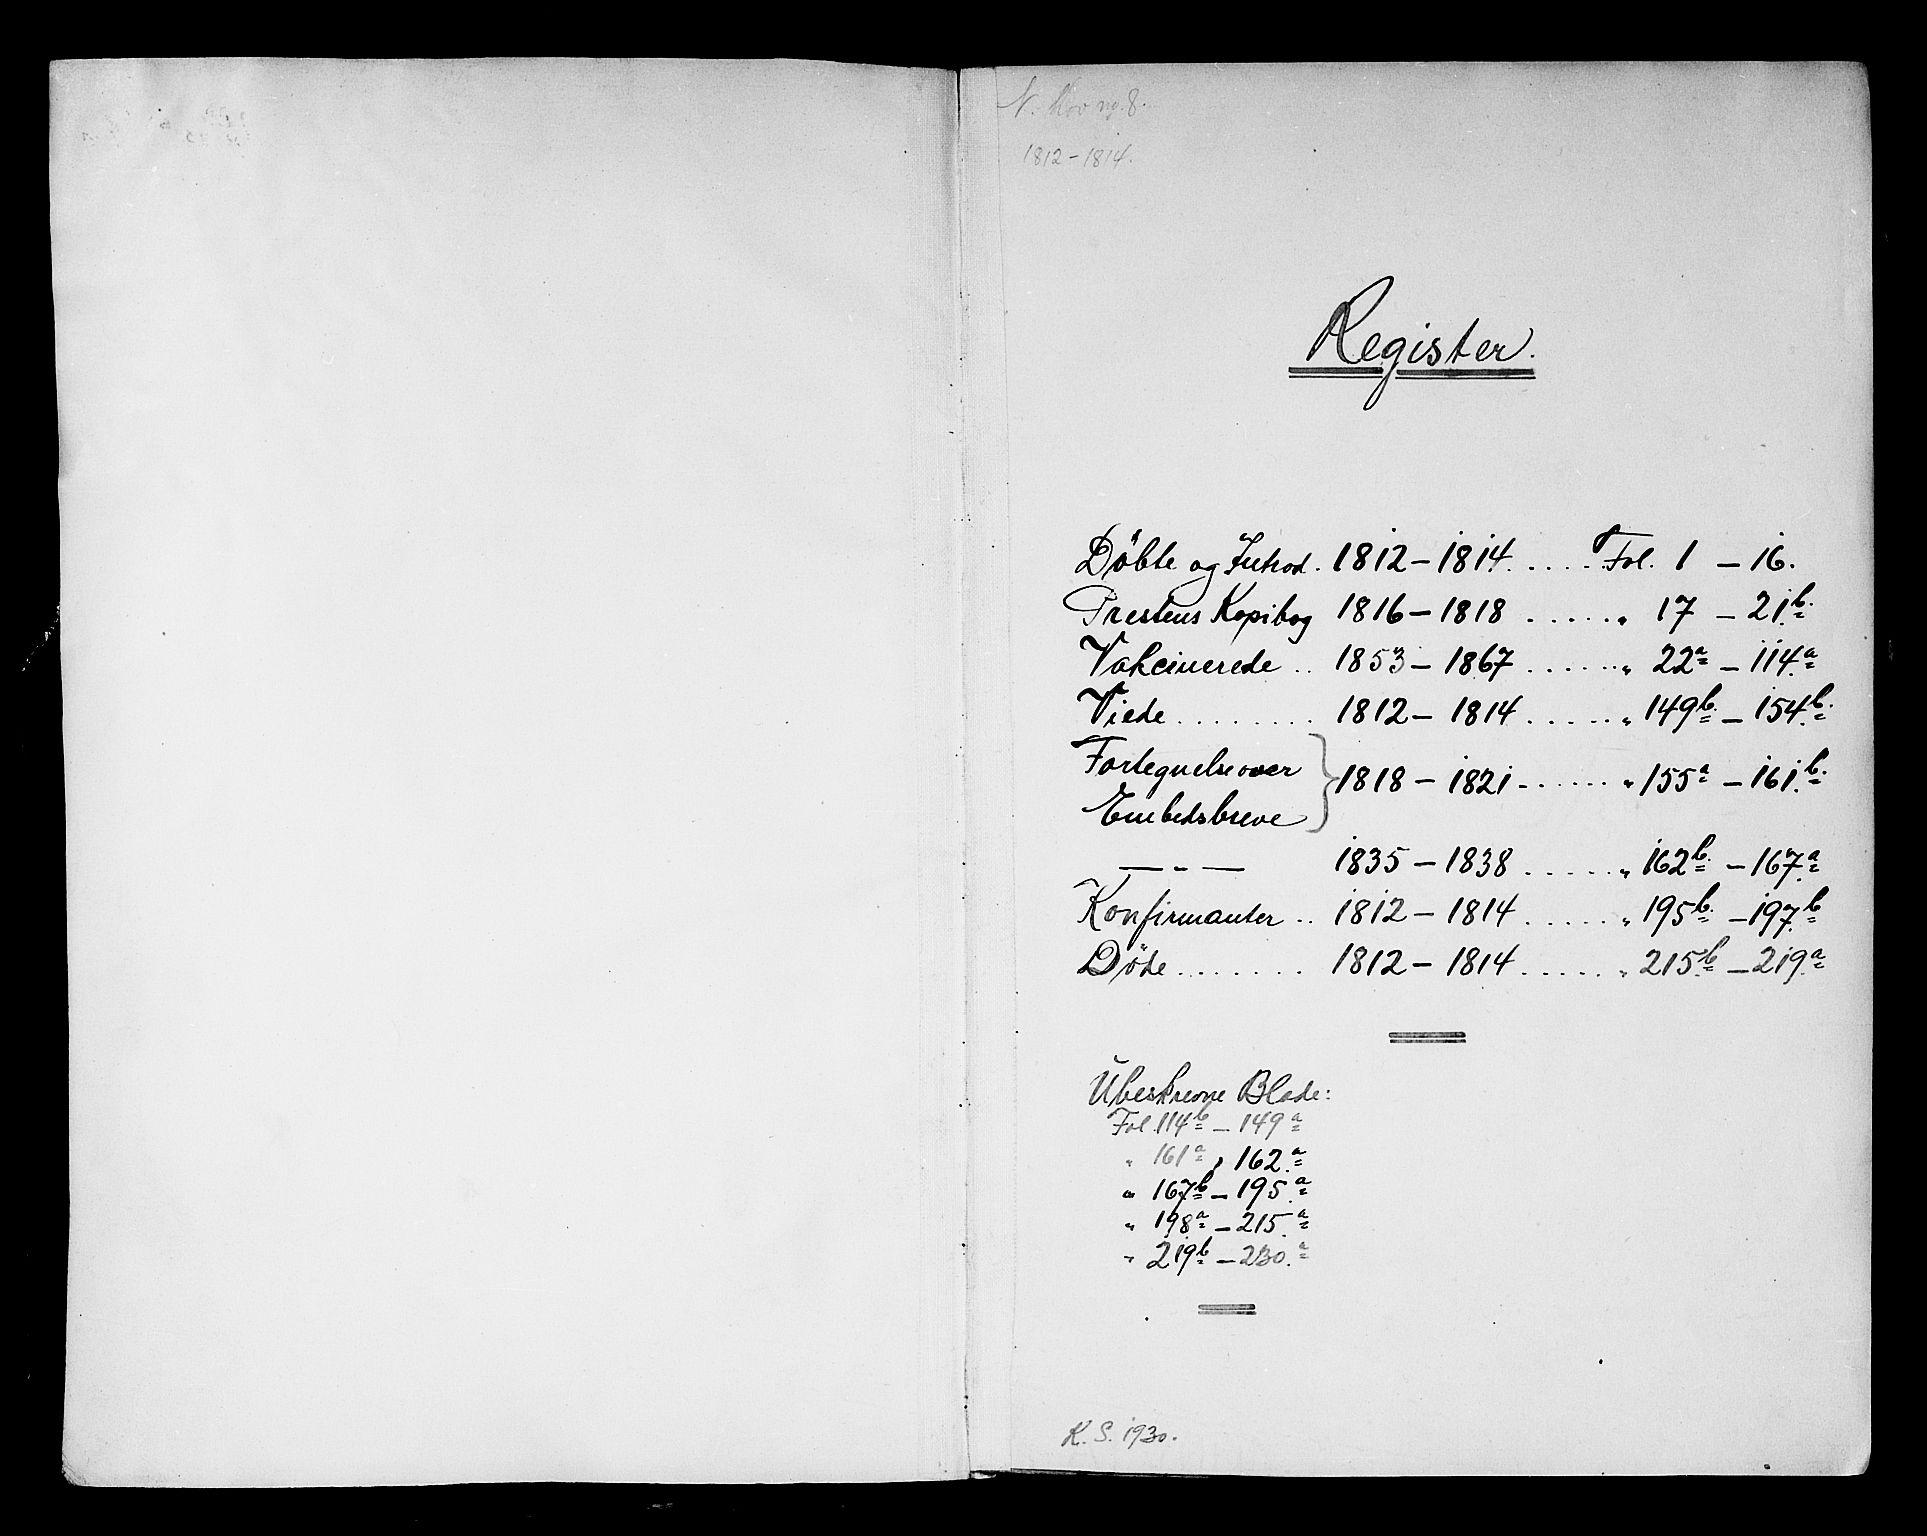 1812-1814.
Register.
Döbte og Introd. 1812-1814. . . . . . Fol. 1 - 16.
Prestens Kopibog 1816-1818 . . . . . " 17 - 21b.
Vakcinerede .. 1853-1867 . . . . . . " 22a - 114a
Viede . . . . . . . . 1812-1814 . . . . . " 149b - 154b.
Fortegnelse over
Embedsbreve } 1818-1821 . . . . . . " 155a - 161b.
— " — 1835-1838 . . . . . " 162b - 167a
Konfirmanter .. 1812-1814 . . . . . " 195b - 197b
Döde . . . . . . . 1812-1814 . . . . . " 215b - 219a
Ubeskrevne Blade:
Fol. 114b - 149a
" 161a, 162a
" 167b - 195a
" 198a - 215a
" 219b - 230a
K. S. 1930.